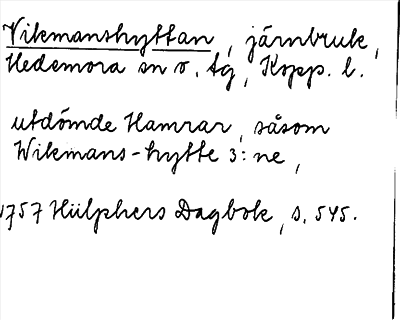 Vikmanshyttan, järnbruk,
Hedemora sn o. tg, Kopp. l.
utdömde Hamrar, såsom
Wikmans-hytte 3:ne,
1757 Hülphers Dagbok, s. 545.